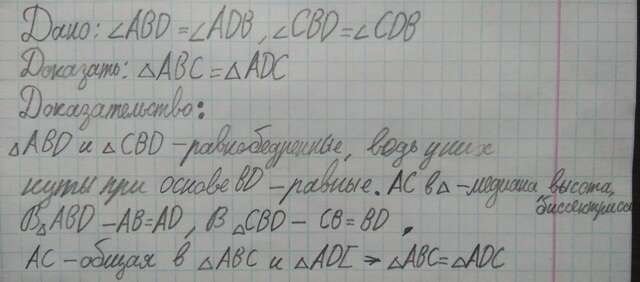 Дано: ∠ABD = ∠ADB, ∠CBD = ∠CDB
Доказать: △ABC = △ADC
Доказательство:
△ABD и △CBD - равнобедренные, водь у них
куты при основе BD - равные. AC в △ - медиана высота,
биссектриса
В △ABD - AB=AD, В △CBD - CB=BD,
AC - общая в △ABC и △ADC → △ABC=△ADC